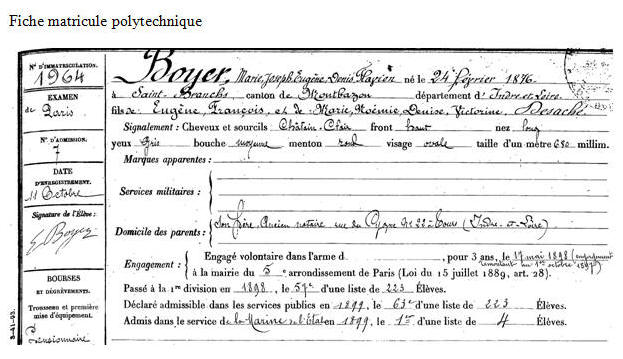 Fiche matricule polytechnique
N° D'IMMATRICULATION.
1964
EXAMEN
de Paris
N° D'ADMISSION.
7
DATE
D'ENREGISTREMENT.
11 Octobre
Signature de l'Élève :
E. Boyer
BOURSES
ET DÉGRÈVEMENTS.
Trousseau et première
mise d'équipement.
Pensionnaire
3-41-93.
Boyer, Marie, Joseph, Eugène, Denis, Flavien né le 24 février 1876
à Saint-Branchs, canton de Montbazon département d'Indre et Loire,
fils de Eugène, François, et de Marie, Noémie, Denise, Victorine, Desaché.
Signalement : Cheveux et sourcils Châtain-Clair front haut nez long
yeux Gris bouche moyenne menton rond visage ovale taille d'un mètre 680 millim.
Marques apparentes :
Services militaires :
Domicile des parents : Son Père, Ancien notaire rue du Cygne N° 22 à Tours (Indre-et-Loire)
Engagement : Engagé volontaire dans l'arme d , pour 3 ans, le 17 mai 1898 (engagement
remontant au 1er octobre 1897)
à la mairie du 5e arrondissement de Paris (Loi du 15 juillet 1889, art. 28).
Passé à la 1re division en 1898, le 57e d'une liste de 223 Élèves.
Déclaré admissible dans les services publics en 1899, le 63e d'une liste de 223 Élèves.
Admis dans le service de la Marine de l'État en 1899, le 1er d'une liste de 4 Élèves.